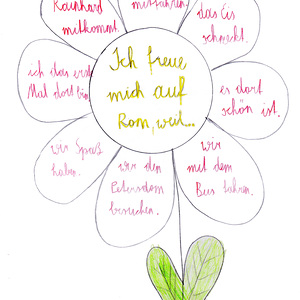 Ich freue
mich auf
Rom, weil...
Rainhard
mitkommt.
mitfahren.
das Eis
schmeckt.
es dort
schön ist.
wir
mit dem
Bus fahren.
wir den
Petersdom
besuchen.
wir Spaß
haben.
ich das erste
Mal dort bin.